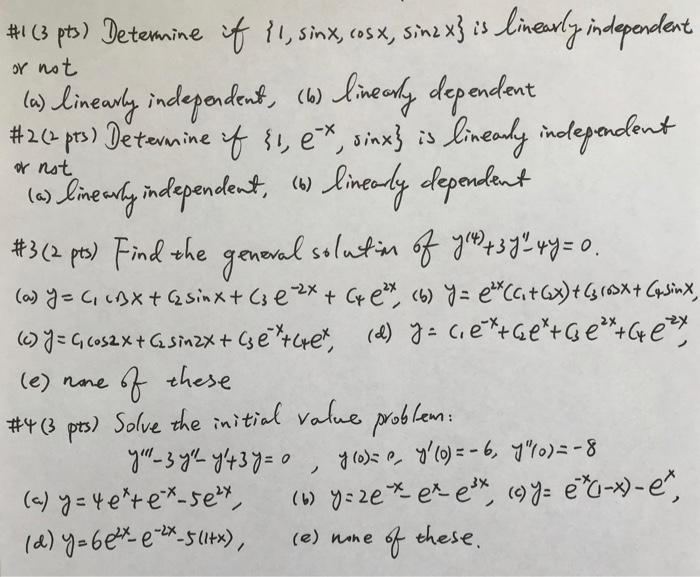 #1 (3 pts) Determine if {1, sinx, cosx, sin2x} is linearly independent
or not
(a) linearly independent, (b) linearly dependent
#2 (2 pts) Determine if {1, e^{-x}, sinx} is linearly independent
or not
(a) linearly independent, (b) linearly dependent
#3 (2 pts) Find the general solution of y^{(4)}+3y''-4y=0.
(a) y = c₁ cosx + c₂ sinx + c₃ e^{-2x} + c₄ e^{2x}, (b) y = e^{2x}(c₁+c₂x)+c₃cosx+c₄sinx,
(c) y = c₁cos2x + c₂ sin2x + c₃e^{-x}+c₄e^{x}, (d) y = c₁e^{-x}+c₂e^{x}+c₃e^{2x}+c₄e^{-2x},
(e) none of these
#4 (3 pts) Solve the initial value problem:
y'''-3y''-y'+3y=0, y(0)=0, y'(0)=-6, y''(0)=-8
(a) y=4e^{x}+e^{-x}-5e^{2x}, (b) y=2e^{-x}-e^{x}-e^{3x}, (c) y=e^{-x}(1-x)-e^{x},
(d) y=6e^{2x}-e^{-2x}-5(1+x), (e) none of these.